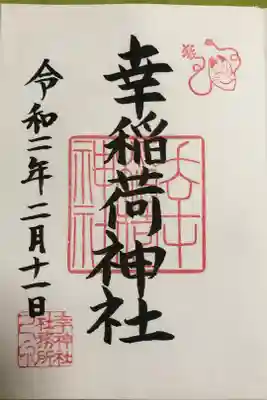 幸稲荷神社
令和二年二月十一日
幸神社
社務所
之印